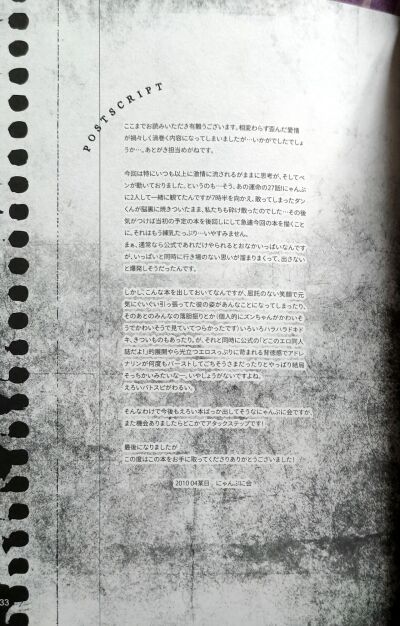 POSTSCRIPT
ここまでお読みいただき有難うございます。相変わらず歪んだ愛情
が禍々しく渦巻く内容になってしまいましたが…いかがでしたでしょ
うか…。あとがき担当めがねです。
今回は特にいつも以上に激情に流されるがままに思考が、そしてペ
ンが動いておりました。というのも…そう、あの運命の27話にゃんぷ
に2人して一緒に観てたんですが7時半を向かえ、散ってしまったダン
くんが脳裏に焼きついたまま、私たちも砕け散ったのでした…その後
気がつけば当初の予定の本を後回しにして急遽今回の本を描くこと
に。それはもう練乳たっぷり…いやすみません。
まぁ、通常なら公式であれだけやられるとおなかいっぱいなんです
が、いっぱいと同時に行き場のない思いが溜まりまくって、出さない
と爆発しそうだったんです。
しかし、こんな本を出しておいてなんですが、屈託のない笑顔で元
気にぐいぐい引っ張ってた彼の姿があんなことになってしまったり、
そのあとのみんなの落胆振りとか（個人的にズンちゃんがかわいそ
うでかわいそうで見ていてつらかったです）いろいろハラハラドキド
キ、きついものもあったり。が、それと同時に公式の「どこのエロ同人
誌だよ！」的展開やら光立つエロスっぷりに苛まれる背徳感でアドレ
ナリンが何度もバーストしてごちそうさまだったりとやっぱり結局
そっちかいみたいな…。いやしょうがないですよね。
えろいバトスピがわるい。
そんなわけで今後もえろい本ばっか出してそうなにゃんぷに会ですが、
また機会ありましたらどこかでアタックステップです！
最後になりましたが
この度はこの本をお手に取ってくださりありがとうございました！
2010 04某日　にゃんぷに会
33